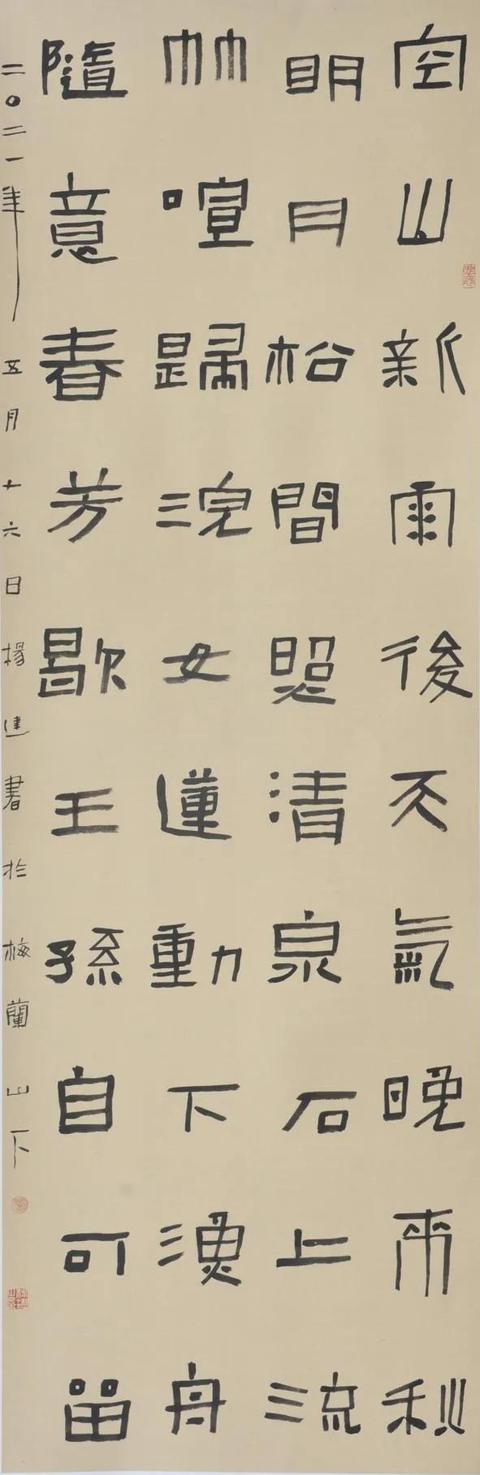 空山新雨後天氣晚来秋
明月松間照清泉石上流
竹喧歸浣女蓮動下漁舟
隨意春芳歇王孫自可留
二〇二一年五月十六日楊建書於梅蘭山下